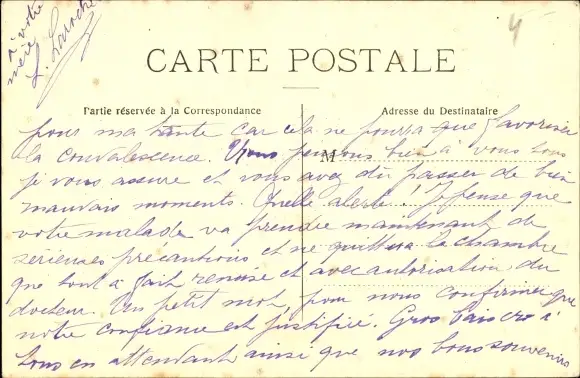 à votre
mère
L. Laroche
4
CARTE POSTALE
Partie réservée à la Correspondance
Adresse du Destinataire
M
pour ma tante car cela ne pourra que favoriser
la convalescence. Nous pensons bien à vous tous
je vous assure et vous avez dû passer de bien
mauvais moments. Quelle alerte! Je pense que
votre malade va prendre maintenant de
serieuses precautions et ne quittera la chambre
que tout à fait remise et avec autorisation du
docteur. Un petit mot, pour nous confirmer que
notre confiance est justifiée. Gros baisers à
tous en attendant ainsi que nos bons souvenirs